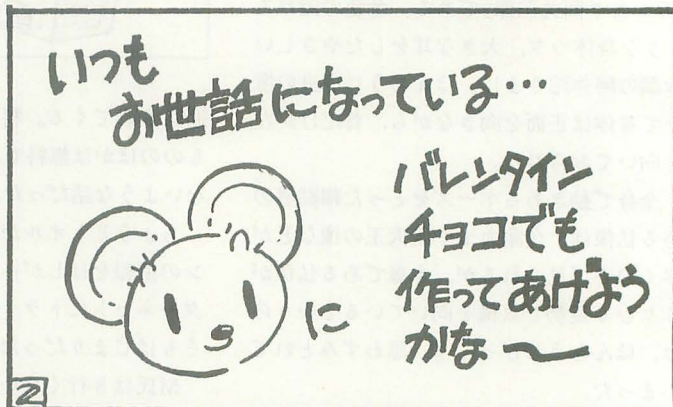 いつも
お世話になっている・・
に
バレンタイン
チョコでも
作ってあげよう
かな〜
2